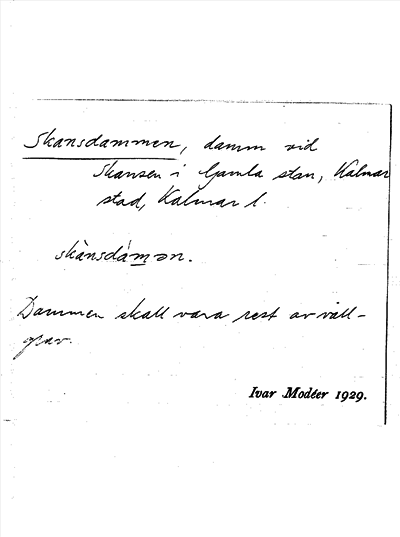 Skansdammen, damm vid
Skansen i Gamla stan, Kalmar
stad, Kalmar l.
skànsdám̲ən.
Dammen skall vara rest av vall-
grav.
Ivar Modéer 1929.